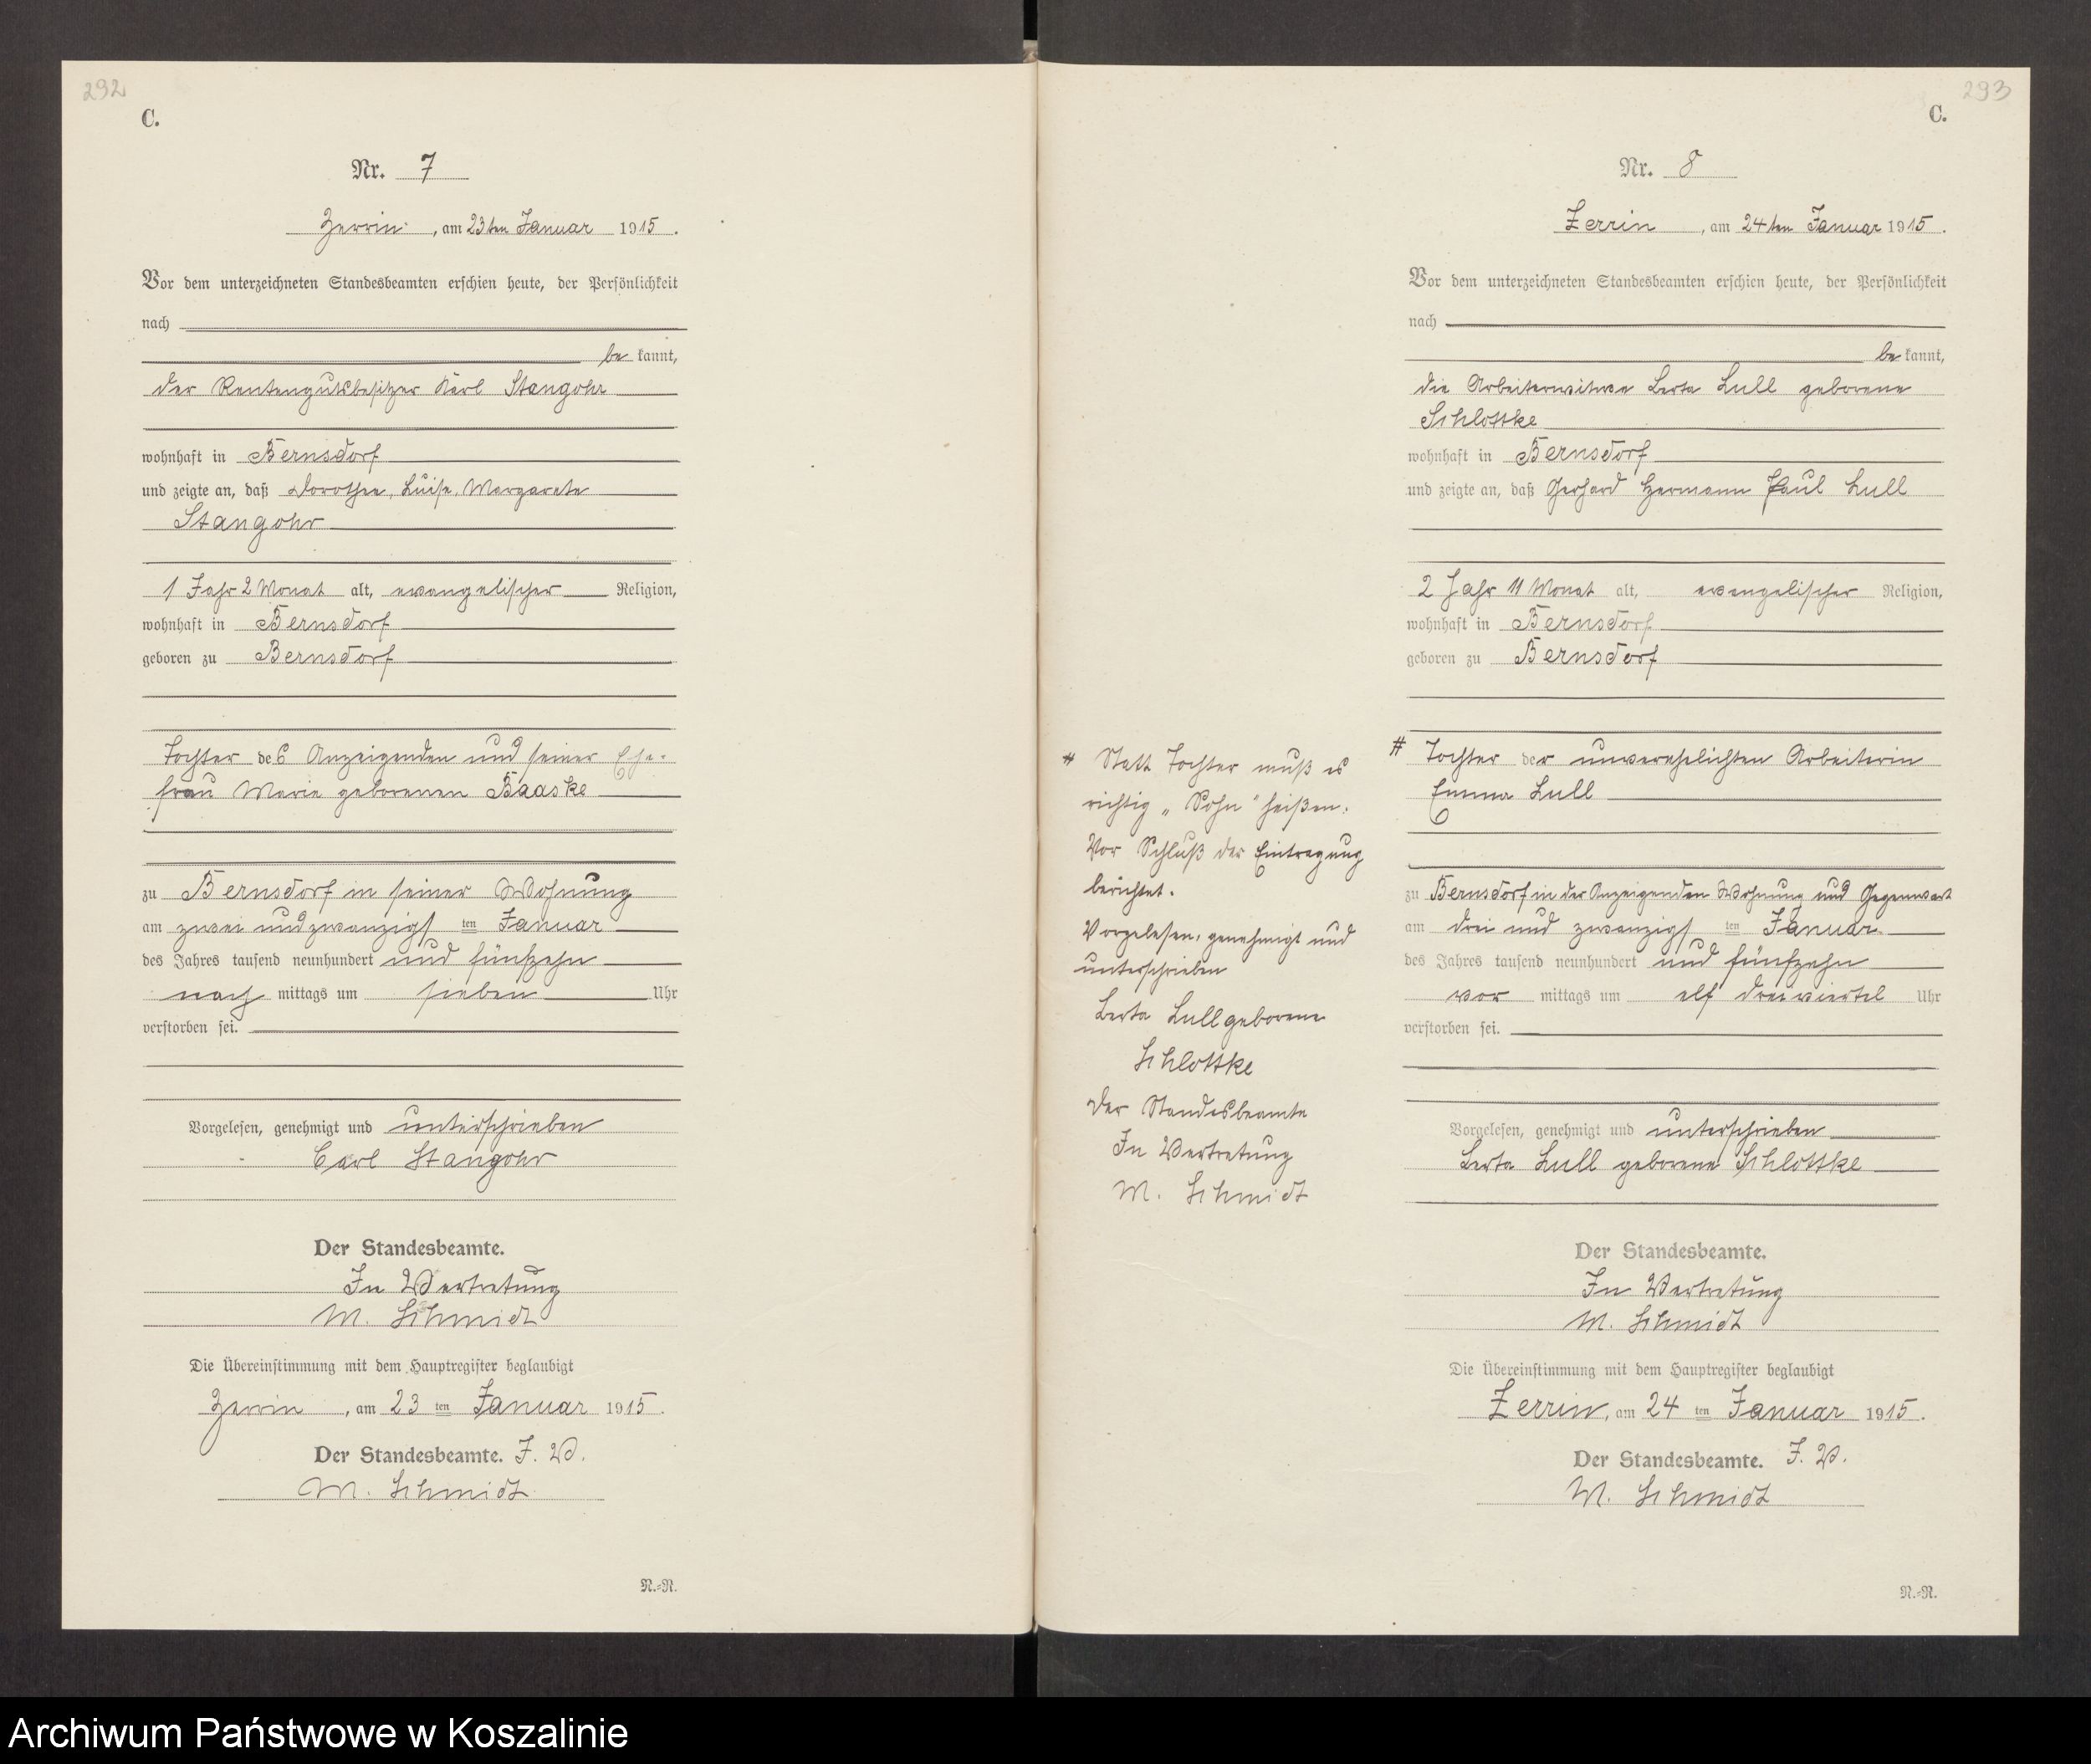 292
C.
Nr. 7
Zerrin, am 23ten Januar 1915.
Vor dem unterzeichneten Standesbeamten erschien heute, der Persönlichkeit
nach
be kannt,
der Rentengutsbesitzer Karl Stangohr
wohnhaft in Bernsdorf
und zeigte an, daß Dorothea, Luise, Margarete
Stangohr
1 Jahr 2 Monat alt, evangelischer Religion,
wohnhaft in Bernsdorf
geboren zu Bernsdorf
Tochter des Anzeigenden und seiner Ehe-
frau Marie geborenen Baaske
zu Bernsdorf in seiner Wohnung
am zwei und zwanzigsten Januar
des Jahres tausend neunhundert und fünfzehn
nach mittags um sieben Uhr
verstorben sei.
Vorgelesen, genehmigt und unterschrieben
Carl Stangohr
Der Standesbeamte.
In Vertretung
M. Schmidt
Die Übereinstimmung mit dem Hauptregister beglaubigt
Zerrin, am 23 ten Januar 1915.
Der Standesbeamte. J. V.
M. Schmidt
N.=N.
293
C.
Nr. 8
Zerrin, am 24ten Januar 1915.
Vor dem unterzeichneten Standesbeamten erschien heute, der Persönlichkeit
nach
be kannt,
die Arbeiterwitwe Berta Lull geborene
Schlottke
wohnhaft in Bernsdorf
und zeigte an, daß Gerhard Hermann Paul Lull
2 Jahr 11 Monat alt, evangelischer Religion,
wohnhaft in Bernsdorf
geboren zu Bernsdorf
# Tochter der unverehelichten Arbeiterin
Emma Lull
zu Bernsdorf in der Anzeigenden Wohnung und Gegenwart
am drei und zwanzigsten Januar
des Jahres tausend neunhundert und fünfzehn
vor mittags um elf dreiviertel Uhr
verstorben sei.
Vorgelesen, genehmigt und unterschrieben
Berta Lull geborene Schlottke
Der Standesbeamte.
In Vertretung
M. Schmidt
Die Übereinstimmung mit dem Hauptregister beglaubigt
Zerrin, am 24 ten Januar 1915.
Der Standesbeamte. J. V.
M. Schmidt
N.=N.
# Statt Tochter muß es
richtig „Sohn" heißen.
Vor Schluß der Eintragung
berichtet.
Vorgelesen, genehmigt und
unterschrieben
Berta Lull geborene
Schlottke
Der Standesbeamte
In Vertretung
M. Schmidt
Archiwum Państwowe w Koszalinie